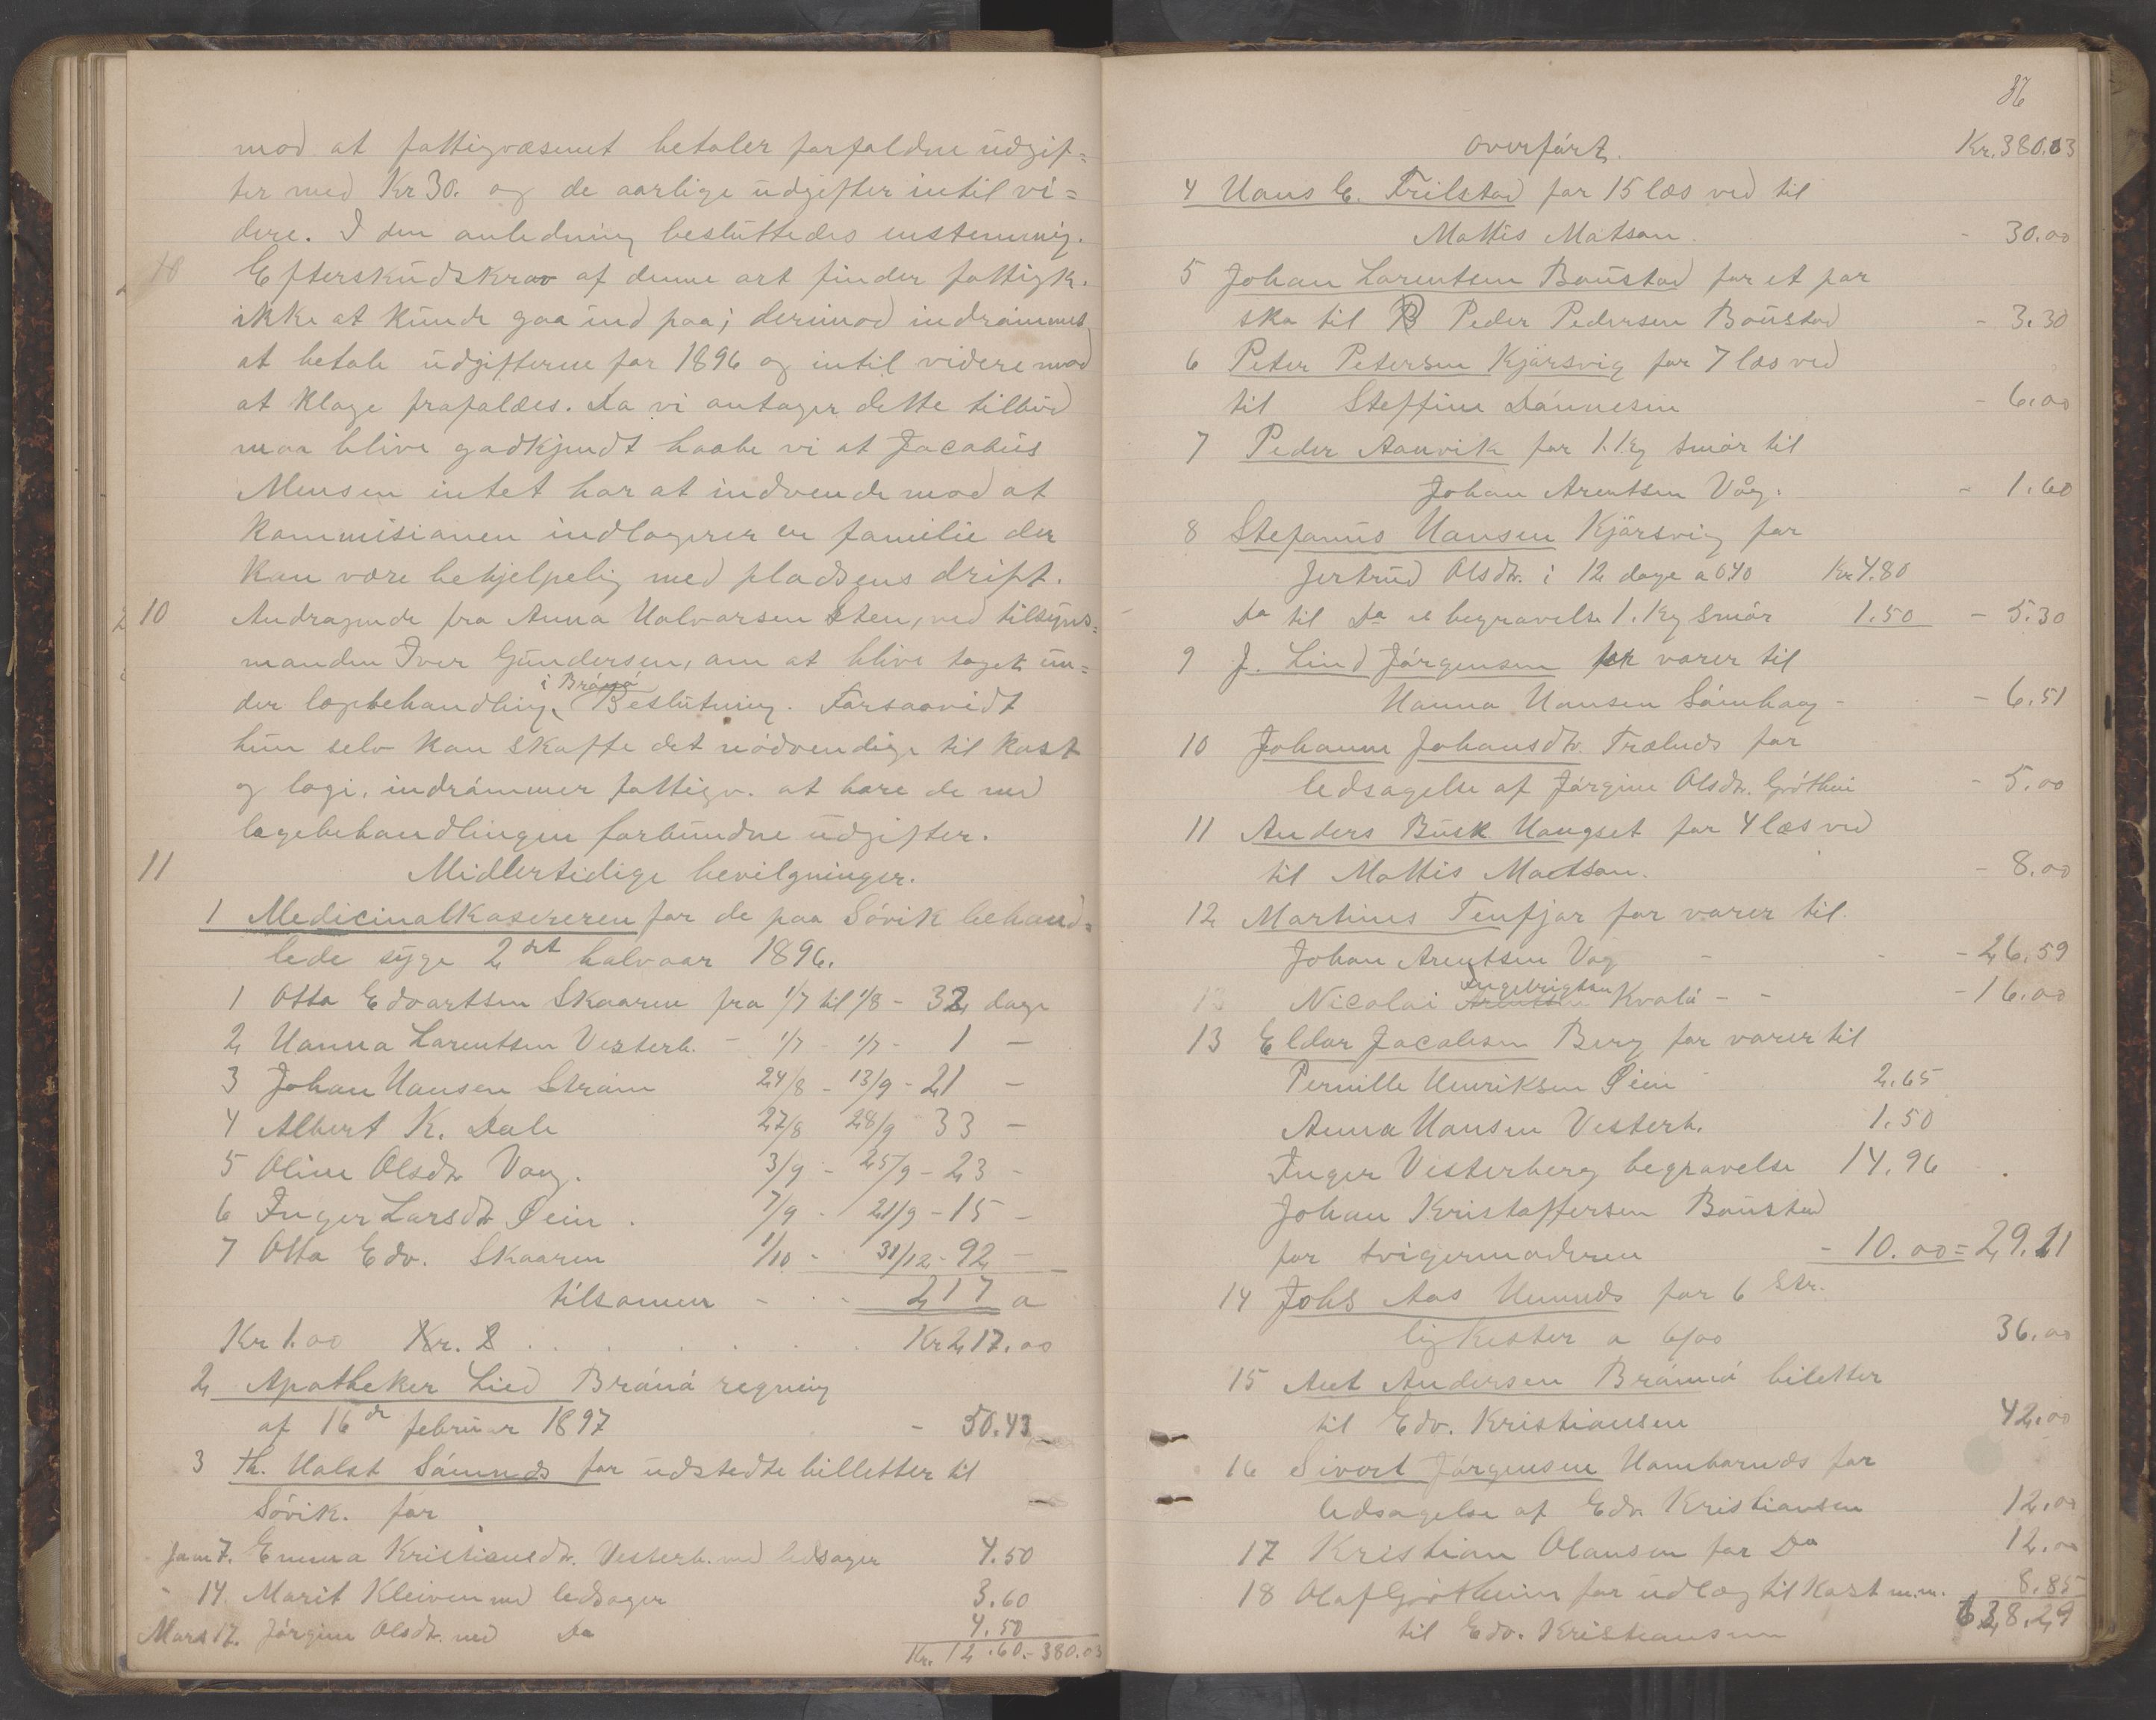 mod at fattigvæsenet betaler forfaldne udgif=
ter med Kr 30. og de aarlige udgifter intil vi=
dere. I den anledning besluttedes enstemmig.
Efterskudskrav af denne art finder fattigk.
ikke at kunde gaa ind paa; derimod indrømmes
at betale udgifterne for 1896 og intil videre mod
at klage frafaldes. Da vi antager dette tilbud
maa blive godkjendt haabe vi at Jacobus
Mensen intet har at indvende mod at
Kommisionen indlogerer en familie der
kan være behjelpelig med pladsens drift.
10 Andragende fra Anna Halvorsen Sten, ved tilsyns=
manden Iver Gundersen, om at blive taget un=
der lægebehandling i Brønø Beslutning. Forsaavidt
hun selv kan skaffe det nødvendige til kost
og logi, indrømmer fattigv. at bære de med
lægebehandlingen forbundne udgifter.
11 Midlertidige bevilgninger.
1 Medicinalkasereren for de paa Søvik behand=
lede syge 2det halvaar 1896.
1 Otto Edvartsen Skaaren fra 1/7 til 1/8 - 32 dage
2 Hanna Larentsen Vesterb. - 1/7 - 1/7 - 1 -
3 Johan Hansen Strøm 24/8 - 13/9 - 21 -
4 Albert K. Dale 27/8 28/9 33 -
5 Oline Olsdtr Vaag. 3/9 - 25/9 - 23 -
6 Inger Larsdtr Øein. 7/9 - 21/9 - 15 -
7 Otto Edv. Skaaren 1/10 - 31/12 - 92 -
tilsamen - - - 217 a
Kr 1.00 Kr. 2 . . . . . . Kr 217.00
2 Apotheker Lied Brønø regning
af 16de februar 1897 - 50.43
3 Th. Holst Sømnæs for udstedte billetter til
Søvik. for
Jan 7. Emma Kristiansdtr. Vesterb. med ledsager 4.50
- 14. Marit Kleiven med ledsager 3.60
Mars 17. Jørgine Olsdtr. med Do 4.50
Kr. 12.60.- 380.03
86
Overført. Kr. 380.03
4 Hans E. Trilstad for 15 læs ved til
Mattis Matson. - 30.00
5 Johan Larentsen Boustad for et par
sko til Peder Pedersen Boustad - 3.30
6 Peter Petersen Kjørsvig for 7 læs ved
til Steffine Dønnesen - 6.00
7 Peder Aanvik for 1. Kg smør til
Johan Arentsen Våg. - 1.60
8 Stefanus Hansen Kjørsvig for
Jertrud Olsdtr. i 12 dage a 0,40 Kr 4.80
Do til Do's begravelse 1. Kg smør 1.50 - 5.30
9 J. Lind Jørgensen for varer til
Hanna Hansen Sømhaag - - 6.51
10 Johanne Johansdtr. Trælnæs for
ledsagelse af Jørgine Olsdtr. Grøtheim - 5.00
11 Anders Busk Haugset for 4 læs ved
til Mattis Matson. - 8.00
12 Martinus Tenfjor for varer til
Johan Arentsen Våg - - - 26.59
13 Nicolai Arentsen Ingebrigtsen Kvalø - - - 16.00
13 Eldar Jacobsen Berg for varer til
Pernille Henriksen Øein 2.65
Anna Hansen Vesterb. 1.50
Inger Vesterberg begravelse 14.96
Johan Kristoffersen Boustad
for svigermoderen - 10.00 = 29.11
14 Johs Aas Humnæs for 6 Str.
ligkister a 6/00 36.00
15 Aut Andersen Brønnø biletter
til Edv. Kristiansen 42.00
16 Sivert Jørgensen Hambornæs for
ledsagelse af Edv. Kristiansen 12.00
17 Kristian Olausen for Do 12.00
18 Olaf Grøtheim for udlæg til kost m.m. 8.85
til Edv. Kristiansen 638.29